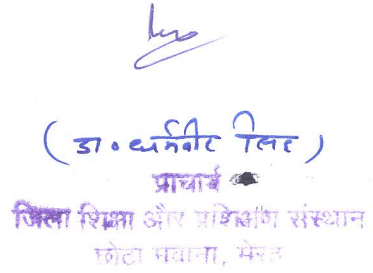 (डा० धर्मवीर सिंह)
प्राचार्य
जिला शिक्षा और प्रशिक्षण संस्थान
छोटा मवाना, मेरठ